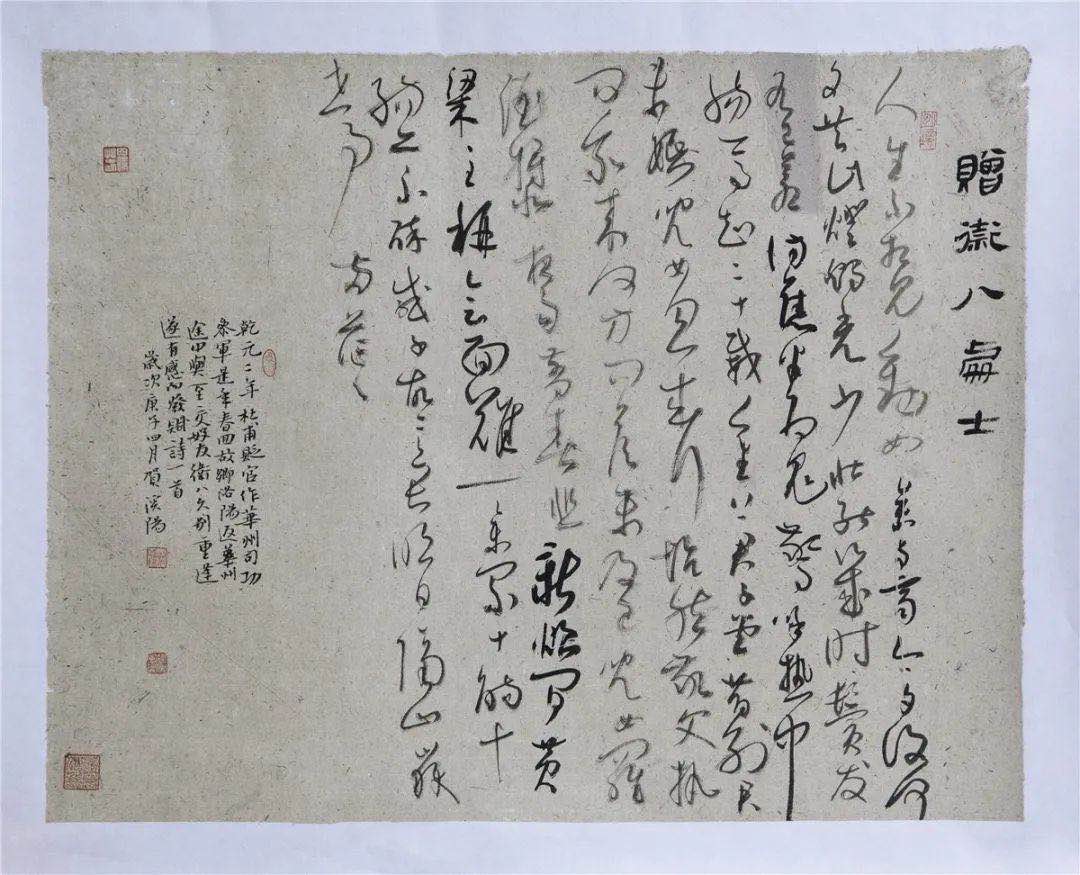 贈衛八處士
人生不相見動如參與商今夕復何
夕共此燈燭光少壯能幾時鬢髮
各已蒼訪舊半為鬼驚呼熱中
腸焉知二十載重上君子堂昔別君
未婚兒女忽成行怡然敬父執
問我來何方問答未及已兒女羅
酒漿夜雨剪春韭新炊間黃
粱主稱會面難一舉累十觴十
觴亦不醉感子故意長明日隔山嶽
世事兩茫〻
乾元二年杜甫貶官作華州司功
參軍是年春回故鄉洛陽返華州
途中與至交好友衛八久別重逢
遂有感而發題詩一首
歲次庚子四月溪陽